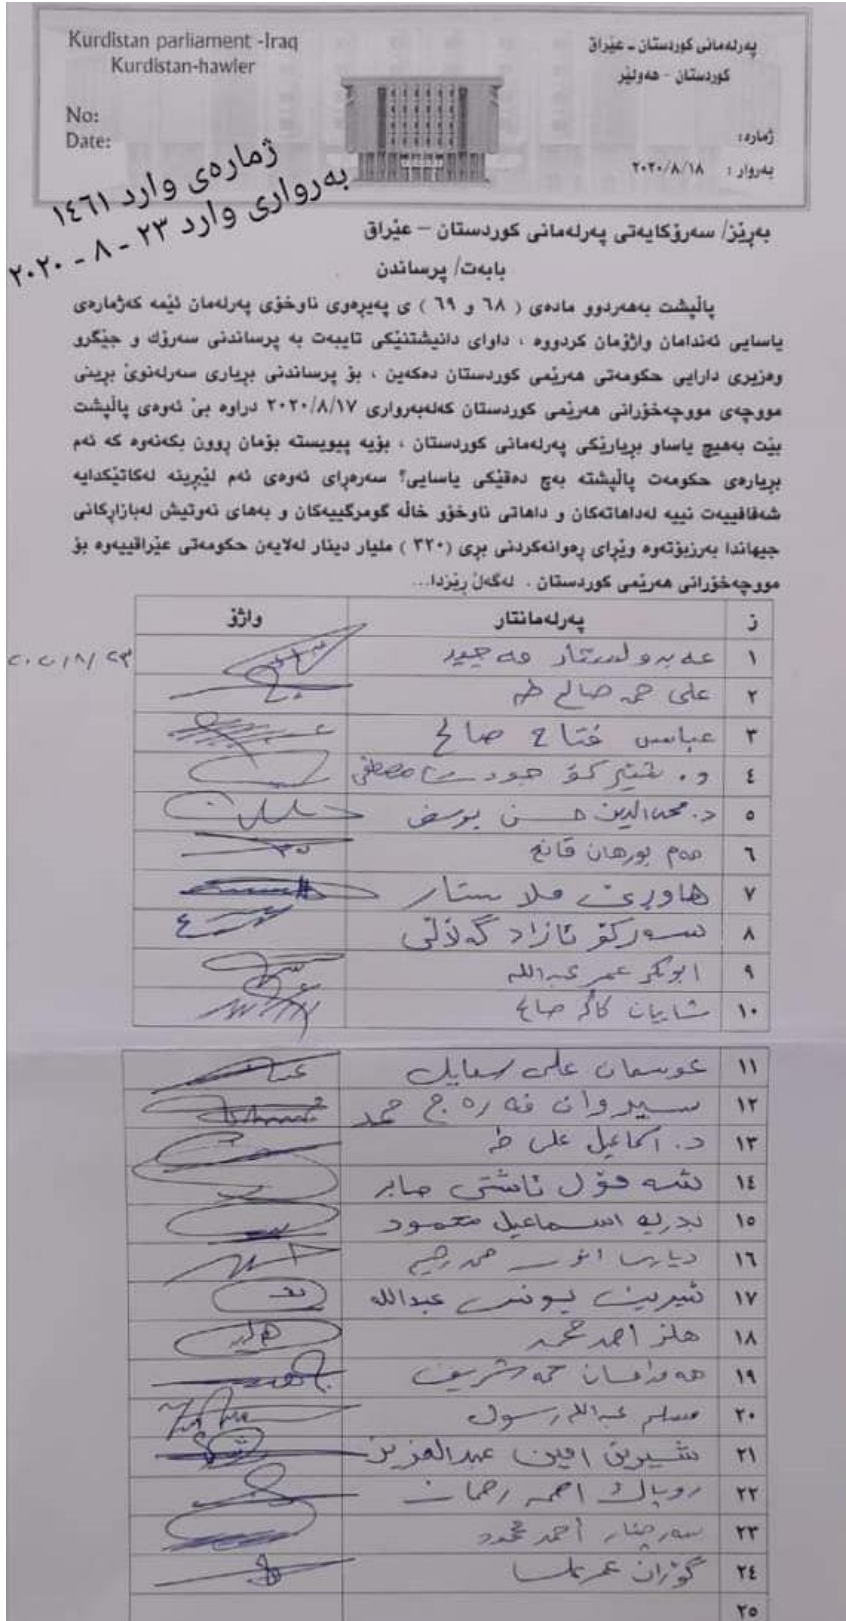 Kurdistan parliament -Iraq
Kurdistan-hawler
No:
Date:
پەرلەمانی کوردستان ـ عێراق
کوردستان - هەولێر
ژمارە:
بەروار : ٢٠٢٠/٨/١٨
ژمارەی وارد ١٤٦١
بەرواری وارد ٢٣ - ٨ - ٢٠٢٠
بەڕێز/ سەرۆکایەتی پەرلەمانی کوردستان – عێراق
بابەت/ پرساندن
پاڵپشت بەهەردوو مادەی ( ٦٨ و ٦٩ ) ی پەیڕەوی ناوخۆی پەرلەمان ئێمە کەژمارەی
یاسایی ئەندامان واژۆمان کردووە ، داوای دانیشتنێکی تایبەت بە پرساندنی سەرۆك و جێگرو
وەزیری دارایی حکومەتی هەرێمی کوردستان دەکەین ، بۆ پرساندنی بڕیاری سەرلەنوێ بڕینی
مووچەی مووچەخۆرانی هەرێمی کوردستان کەلەبەرواری ٢٠٢٠/٨/١٧ دراوە بێ ئەوەی پاڵپشت
بێت بەهیچ یاساو بڕیارێکی پەرلەمانی کوردستان ، بۆیە پیویستە بۆمان ڕوون بکەنەوە کە ئەم
بڕیارەی حکومەت پاڵپشتە بەچ دەقێکی یاسایی؟ سەرەڕای ئەوەی ئەم لێبڕینە لەکاتێکدایە
شەفافییەت نییە لەداهاتەکان و داهاتی ناوخۆو خاڵە گومرگییەکان و بەهای نەوتیش لەبازاڕکانی
جیهاندا بەرزبۆتەوە وێڕای ڕەوانەکردنی بڕی (٣٢٠ ) ملیار دینار لەلایەن حکومەتی عێراقییەوە بۆ
مووچەخۆرانی هەرێمی کوردستان . لەگەڵ ڕێزدا...
ز پەرلەمانتار واژۆ
١ عەبدولستار مەجید ٢٠٢٠/٨/٢٣
٢ علی حمە صالح طە
٣ عباس فتاح صالح
٤ د. شێرکۆ جودت مصطفی
٥ د. محی‌الدین حسن یوسف
٦ مەم بورهان قانع
٧ هاوڕێ مەلا ستار
٨ سەرکۆ ئازاد گەڵاڵی
٩ ابوبکر عمر عبداللە
١٠ شایان کاکە صالح
١١ عوسمان علی
١٢ سیروان فەرەج محمد
١٣ د. علی طە
١٤ شەپۆل ئاشتی صابر
١٥ بدریە اسماعیل محمود
١٦
١٧ شیرین یونس عبداللە
١٨ هلز احمد محمد
١٩ حمە شریف
٢٠ مسلم عبداللە رسول
٢١ شیرین امین عبدالعزیز
٢٢ روپاك احمد رحمان
٢٣ سەرچنار أحمد محمود
٢٤ گۆران عمر
٢٥